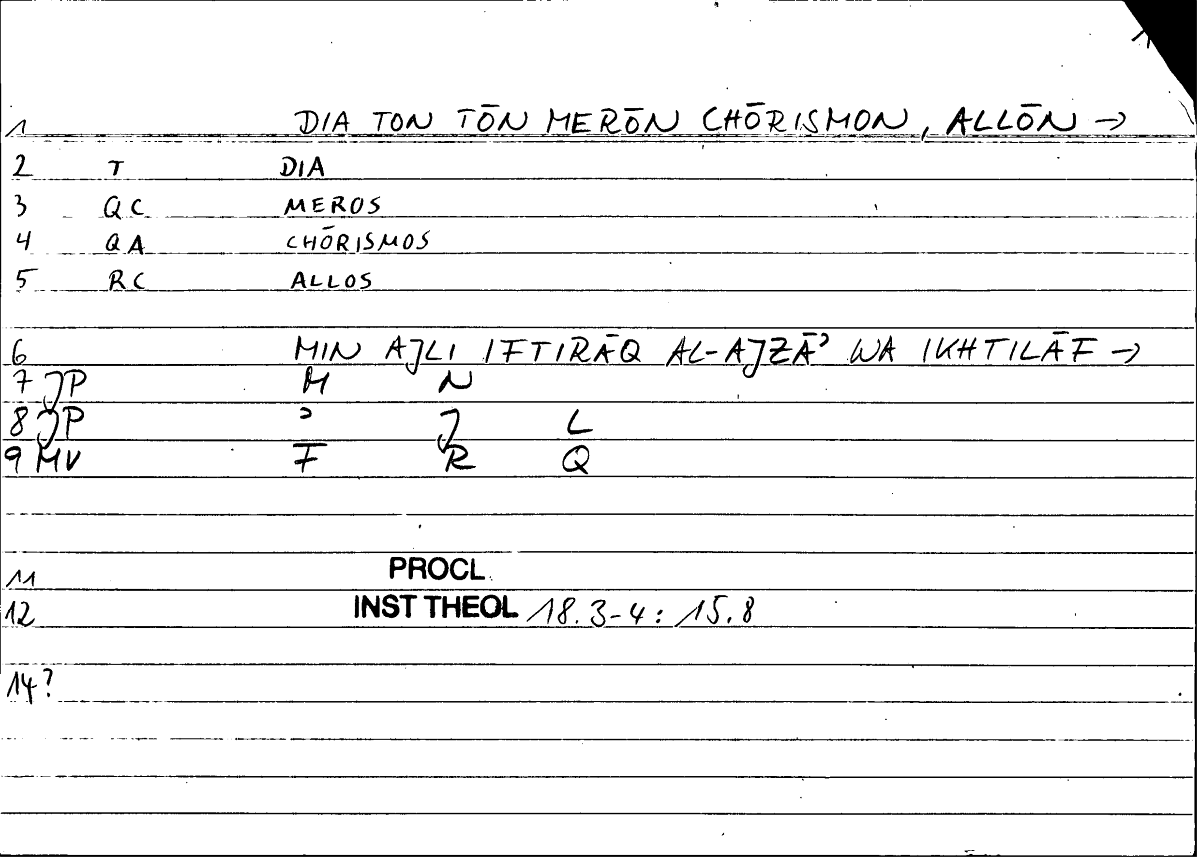 1
1 DIA TON TŌN MERŌN CHŌRISMON, ALLŌN →
2 T DIA
3 QC MEROS
4 QA CHŌRISMOS
5 RC ALLOS
6 MIN AJLI IFTIRĀQ AL-AJZĀʾ WA IKHTILĀF →
7 JP M N
8 JP ʾ J L
9 MV F R Q
11 PROCL.
12 INST THEOL 18.3-4: 15.8
14?